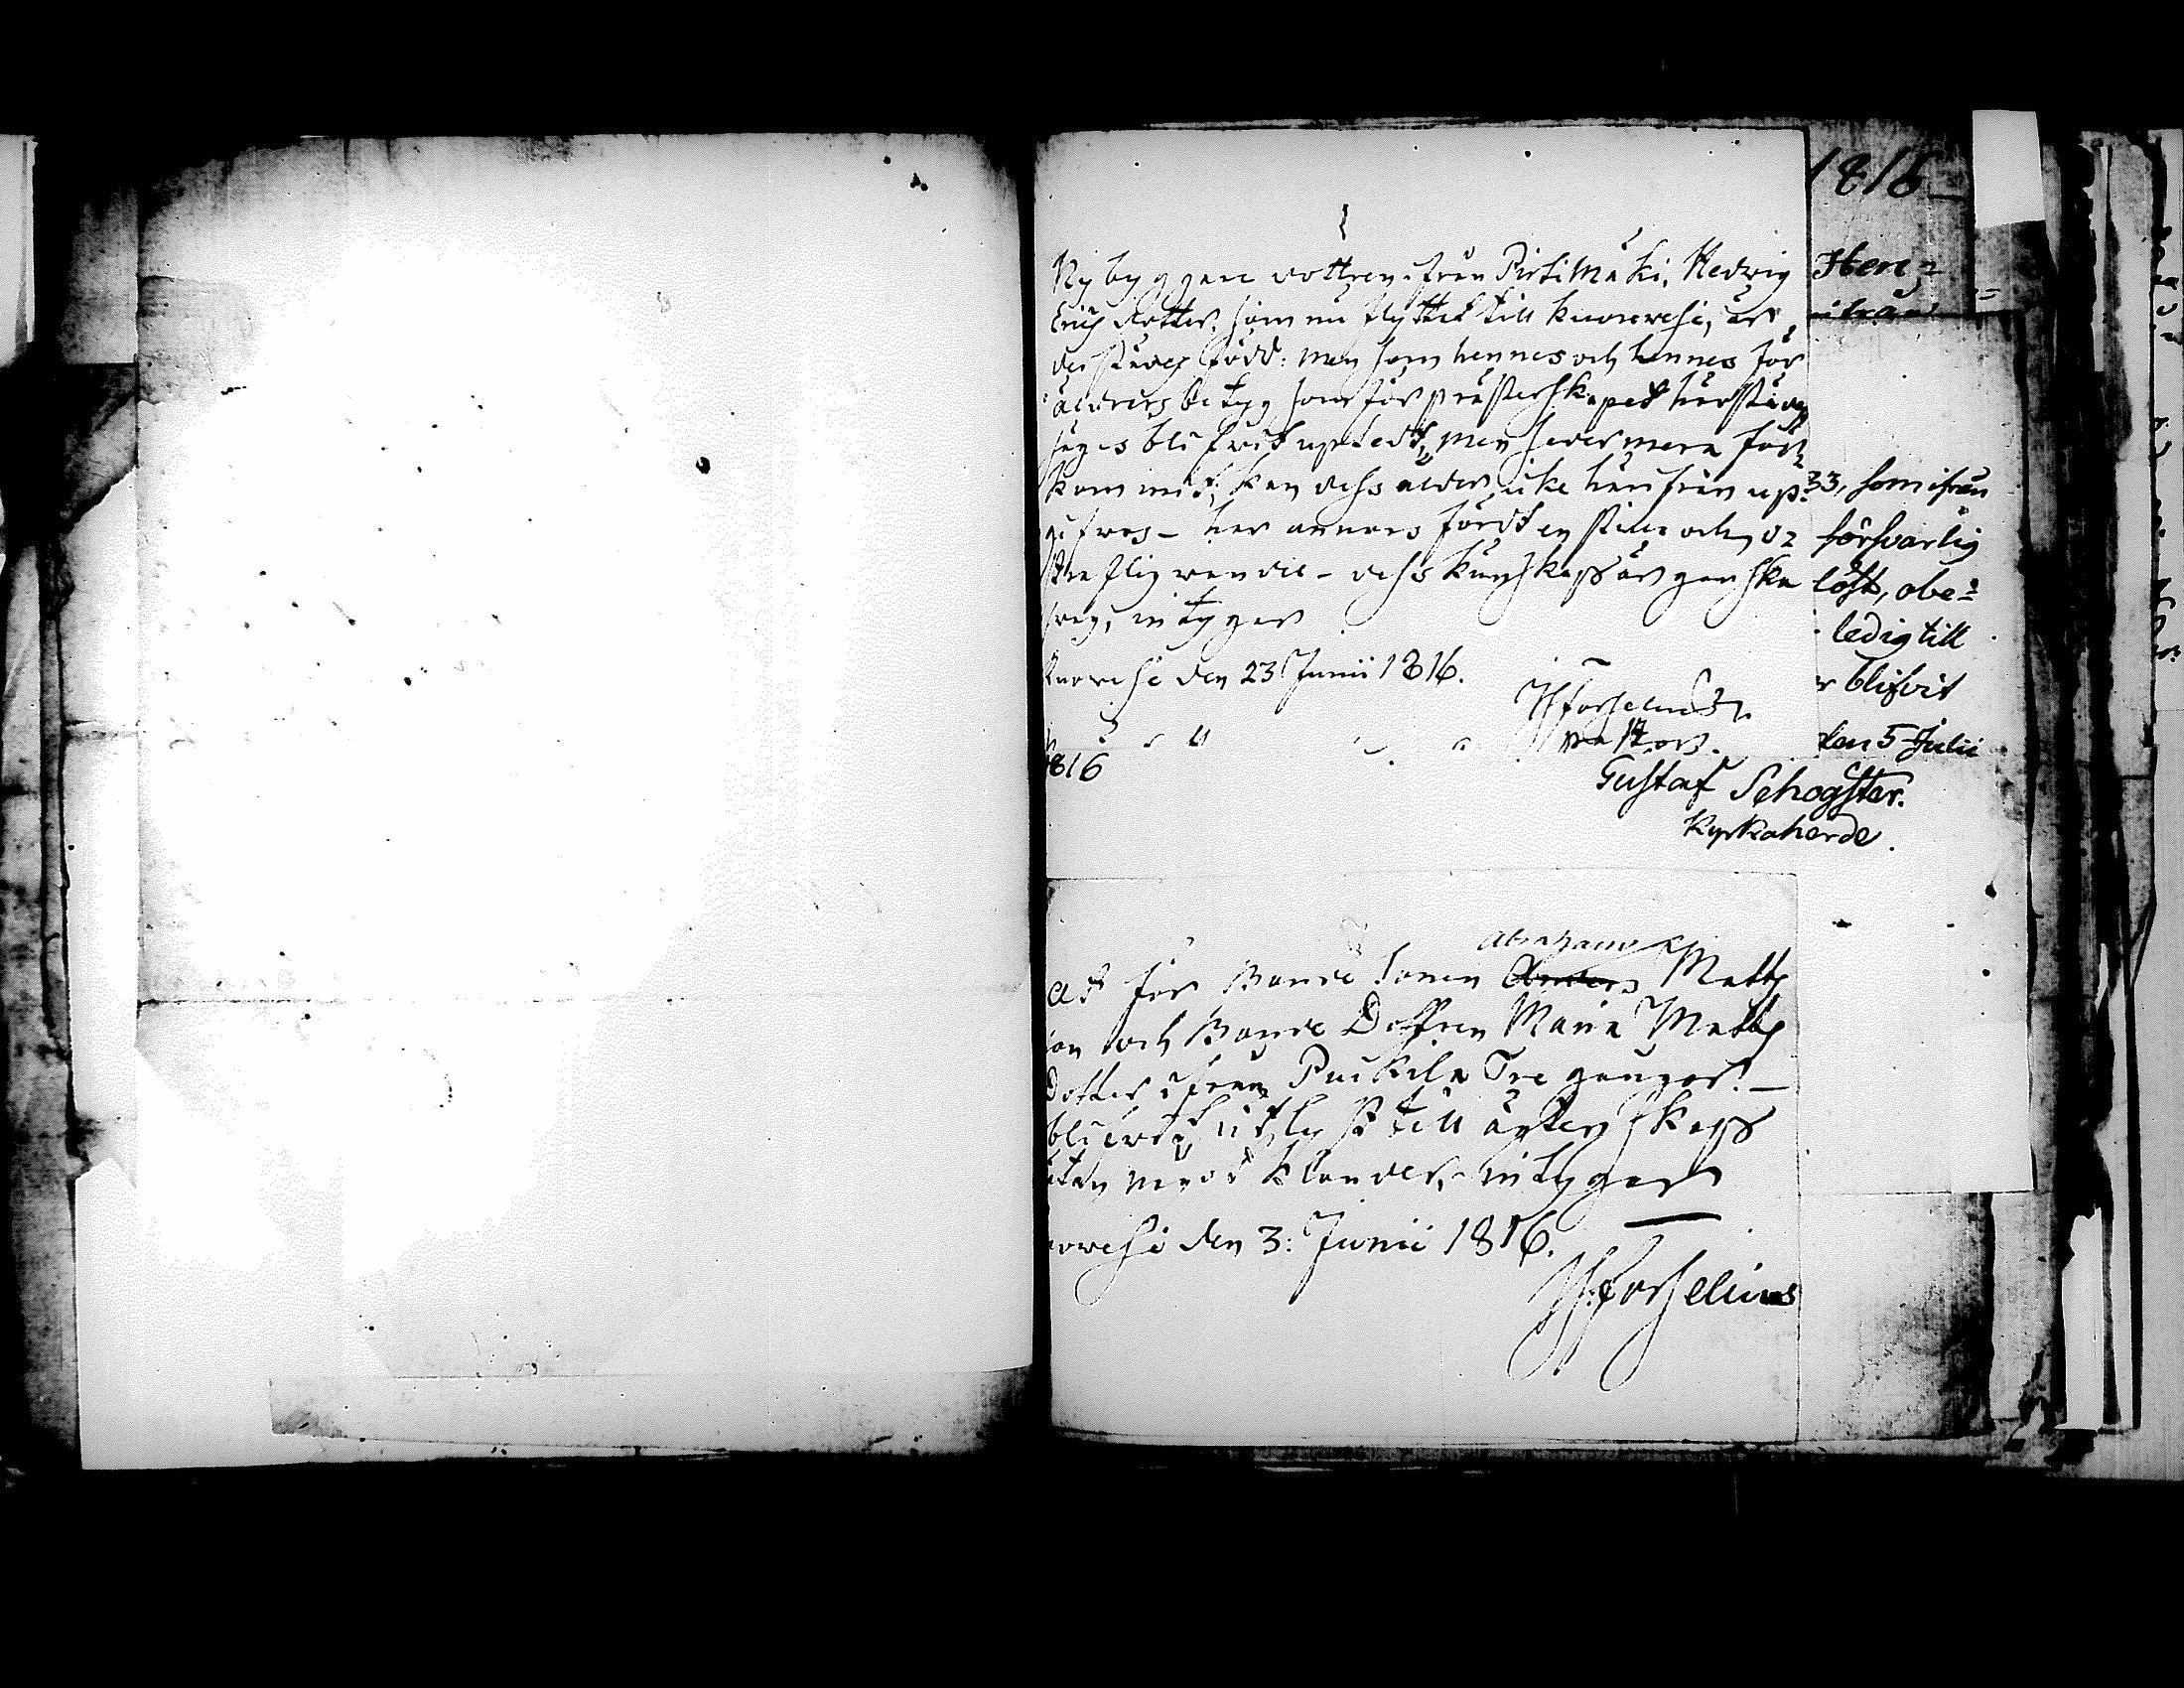 1816
Nybyggare dottren ifrån Pirtimäki, Hedwig
Erichsdotter, som nu flyttat till Kuorevesi, är
derstädes född: men som hennes och hennes för
äldrars betyg som för prästerskapet härstädes
säges blifwit uptedt, men sedermera för-
kommit, kan dess ålder icke härifrån up-
gifwas - har annars fördt en stilla och o-
straflig wandel - dess kunskap är ganska
swag, intygar
Kuorevesi den 23 Junii 1816.
HForselius
pastor.
Here=
33, som ifrån
försvarlig
löst, obe=
ledig till
r blifvit
den 5 Julii
1816
Gustaf Schogster.
Kyrkoherde.
Abraham
At för Bonde Sonen Anders Matts
son och Bonde Dottren Maria Matts
Dotter ifrån Puckila Tre gångor
blifwit utlyst till äktenskap
utan något klander, intygar
uorevesi den 3: Junii 1816.
HForselius